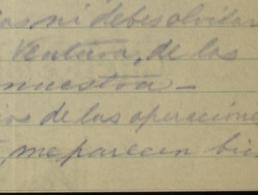 ni debes olvidar
Ventura, de las
nuestra —
de las operaciones
me parecen bien